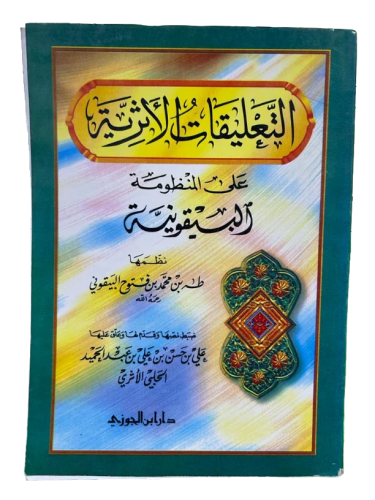 التعليقات الأثرية
على المنظومة
البيقونية
نظمها
طه بن محمد بن فتوح البيقوني
رحمه الله
ضبط نصها وقدم لها وعلق عليها
علي بن حسن بن علي بن عبد الحميد
الحلبي الأثري
دار ابن الجوزي